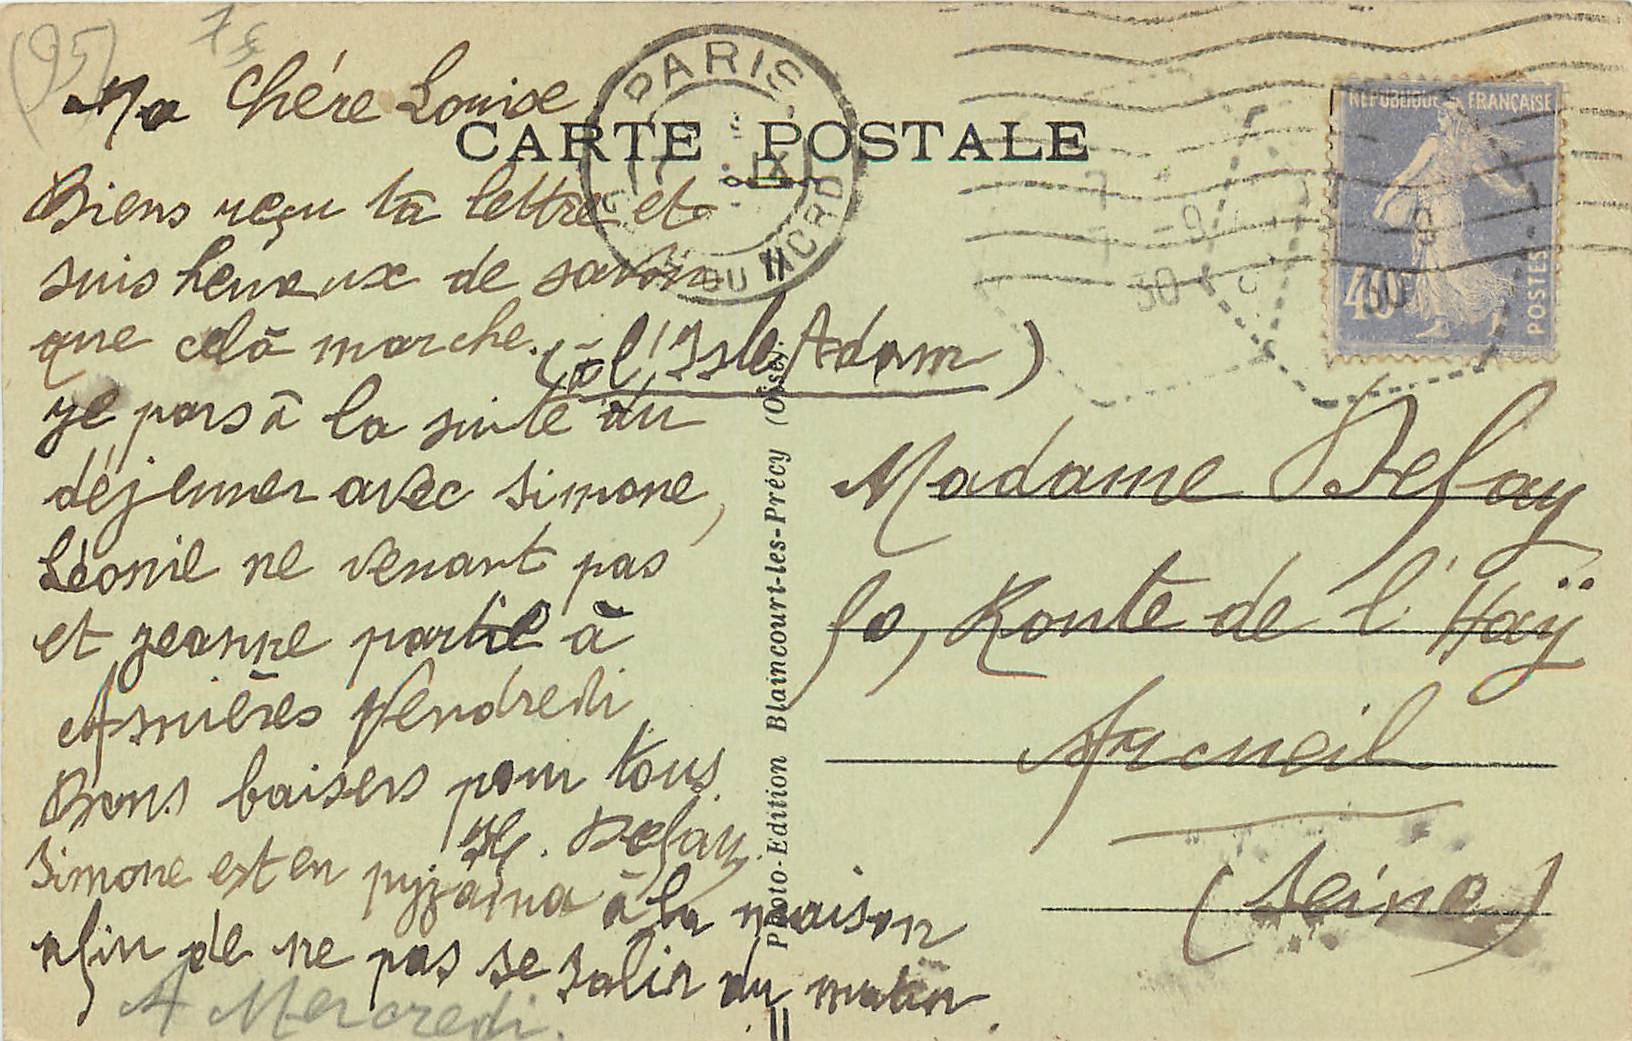 (95) 75
PARIS
GARE DU NORD
CARTE POSTALE
RÉPUBLIQUE FRANÇAISE
40c
POSTES
7 -9
30
Ma Chére Louise
Biens reçu ta lettre et
suis heureux de savoir
que celà marche.
(à l'Isle Adam)
je pars à la suite du
déjeuner avec Simone,
Léonie ne venant pas
et jeanne partie à
Asnières Vendredi
Bons baisers pour tous.
H. Defay.
Simone est en pyjama à la maison
afin de ne pas se salir du matin.
A Mercredi.
Photo-Edition Blaincourt-les-Précy (Oise).
Madame Defay
50, Route de l'Haÿ
Arcueil
(Seine)